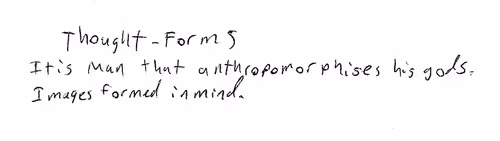 Thought-Forms
It is man that anthropomorphises his gods.
Images formed in mind.